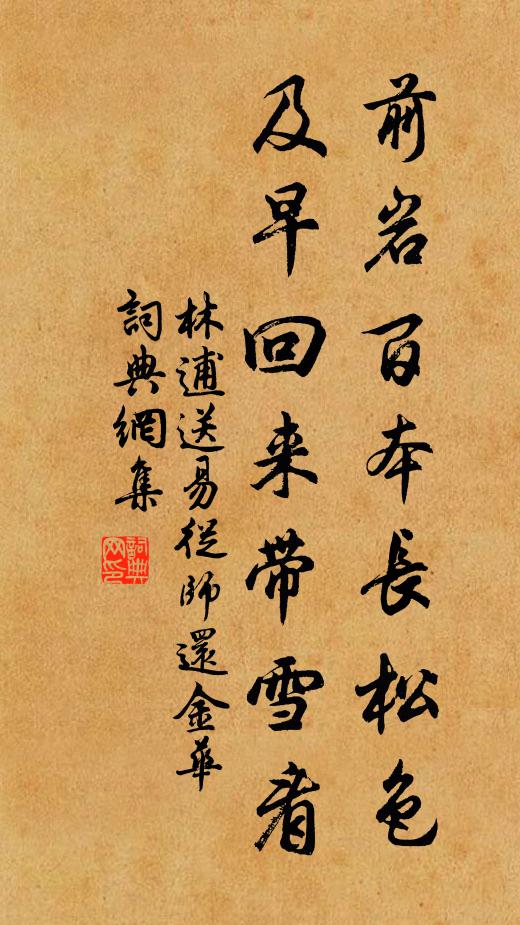 前岩百本長松色
及早回来带雪看
林逋送易從師還金華
詞典網集
詞典
网印